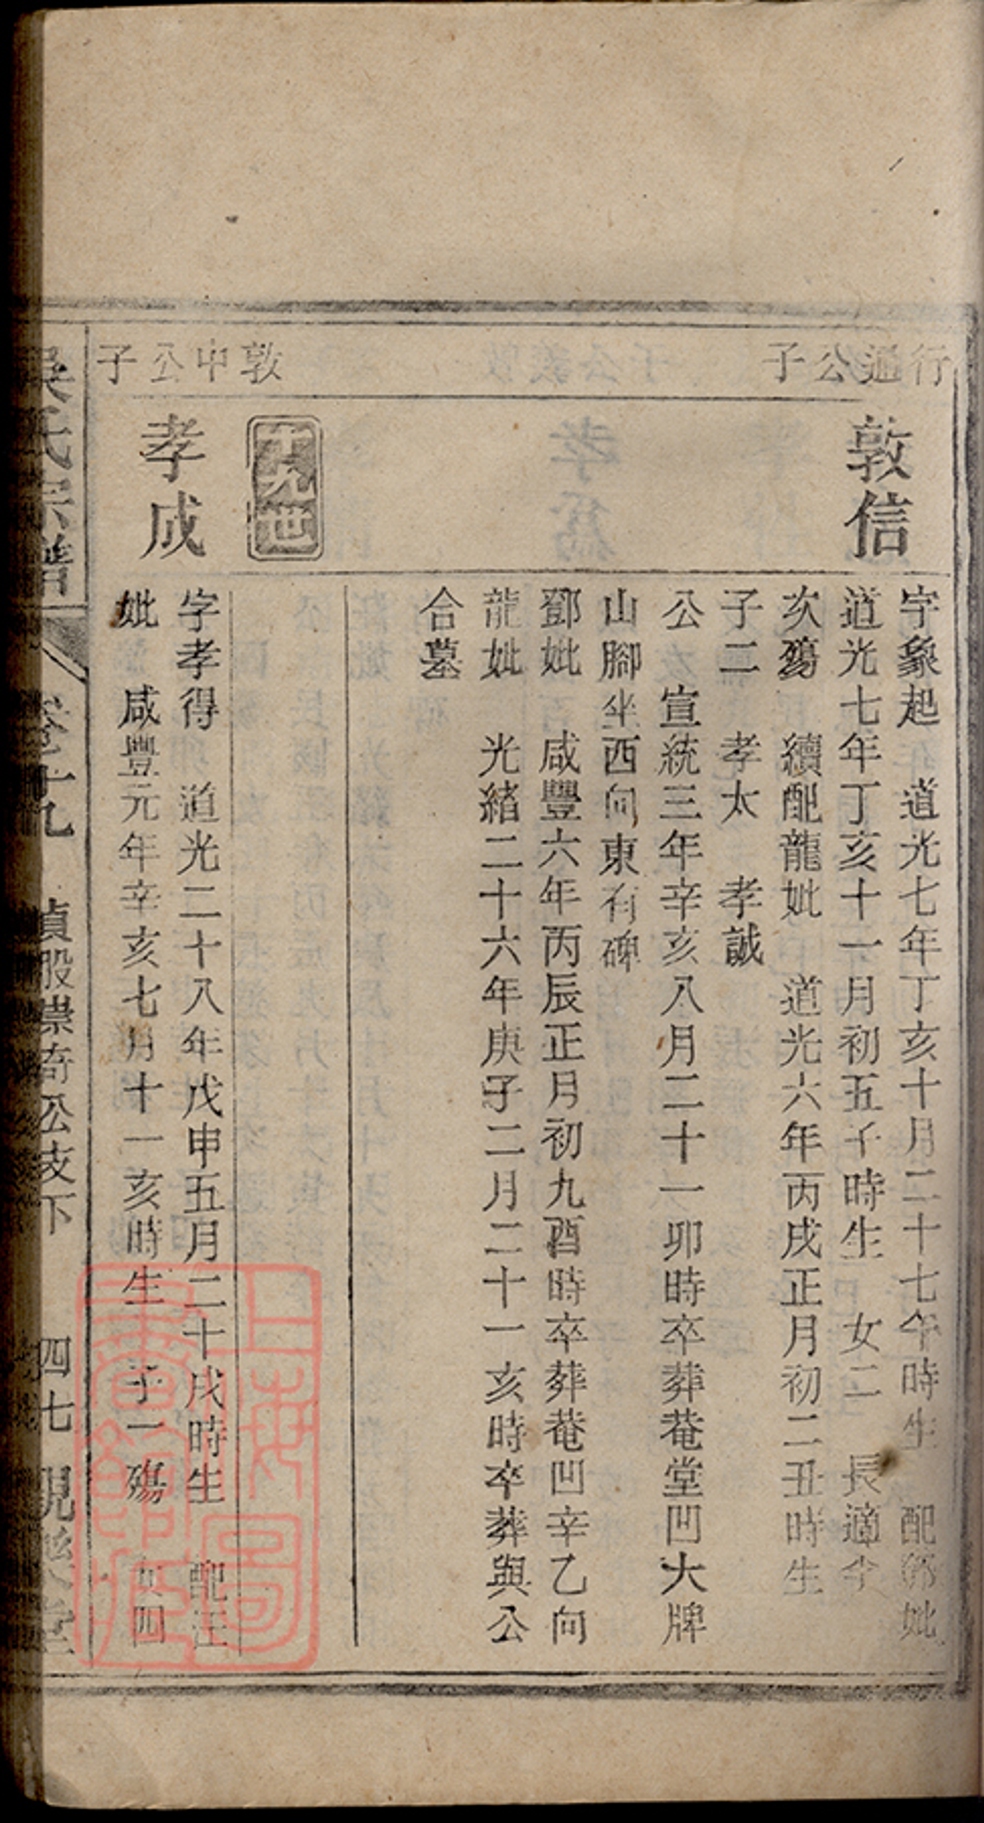 行通公子
敦信
字象起　道光七年丁亥十月二十七午時生　配鄧妣
道光七年丁亥十一月初五子時生　女二　長適李
次殤　續配龍妣　道光六年丙戌正月初二丑時生
子二　孝太　孝誠
公　宣統三年辛亥八月二十一卯時卒葬菴堂凹大牌
山腳坐西向東有碑
鄧妣　咸豐六年丙辰正月初九酉時卒葬菴凹辛乙向
龍妣　光緒二十六年庚子二月二十一亥時卒葬與公
合墓
十九世
敦中公子
孝成
字孝得　道光二十八年戊申五月二十戌時生　配汪
妣　咸豐元年辛亥七月十一亥時生　子一殤　女四
吳氏宗譜　卷十九　貞股崇奇公支下　四七　親樂堂
上海圖書館藏